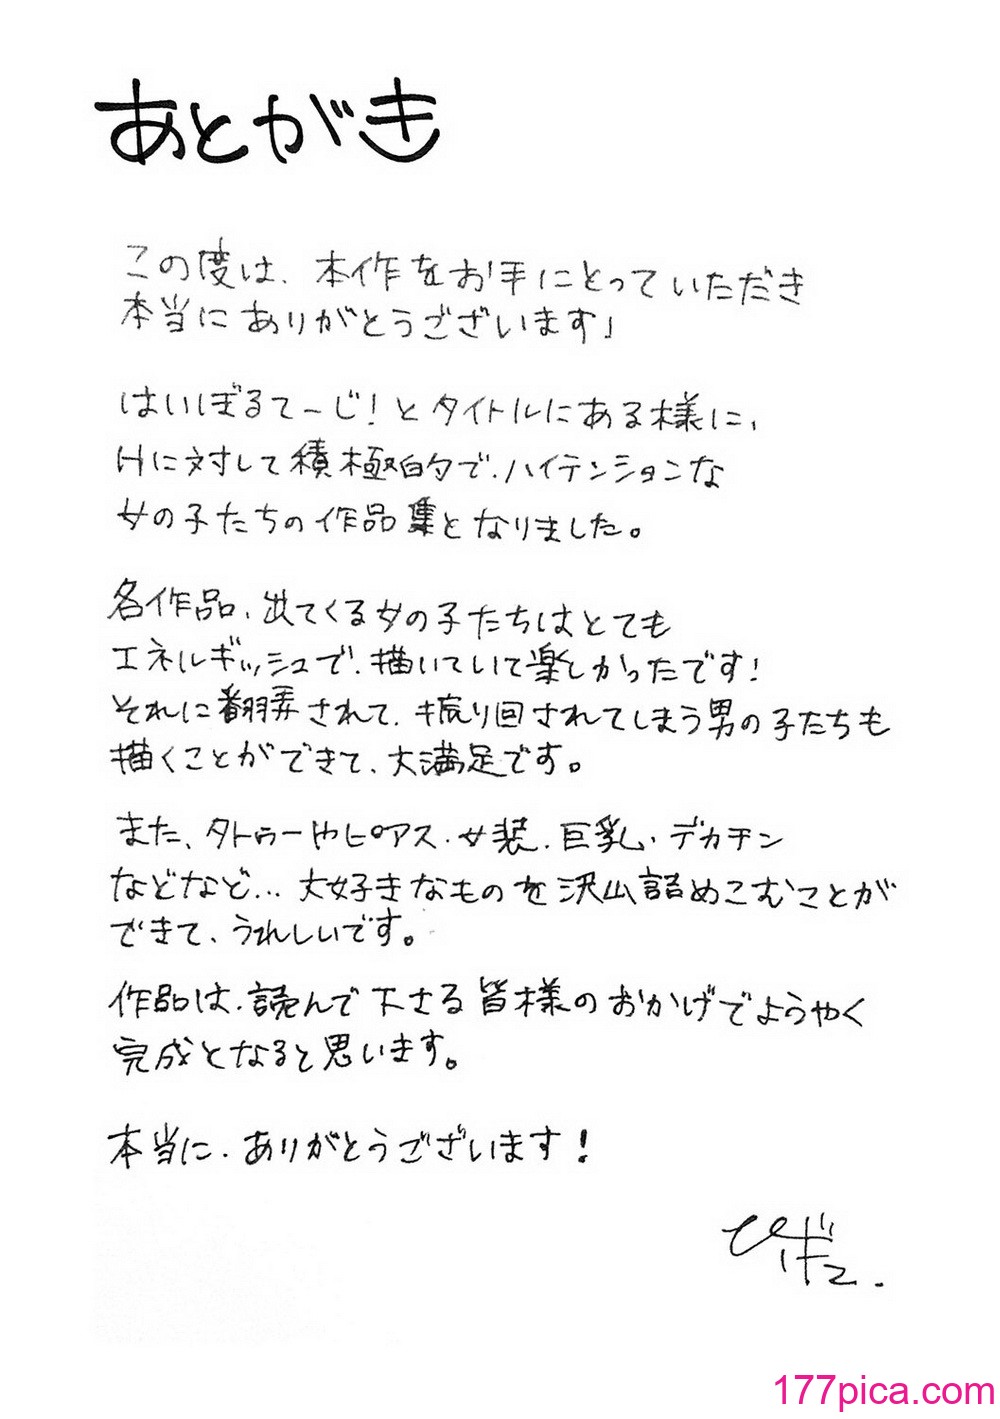 あとがき
この度は、本作をお手にとっていただき
本当にありがとうございます」
はいぼるてーじ!とタイトルにある様に、
Hに対して積極的で、ハイテンションな
女の子たちの作品集となりました。
各作品、出てくる女の子たちはとても
エネルギッシュで、描いていて楽しかったです!
それに翻弄されて、振り回されてしまう男の子たちも
描くことができて、大満足です。
また、タトゥーやピアス、女装、巨乳、デカチン
などなど… 大好きなものを沢山詰めこむことが
できて、うれしいです。
作品は、読んで下さる皆様のおかげでようやく
完成となると思います。
本当に、ありがとうございます!
177pica.com